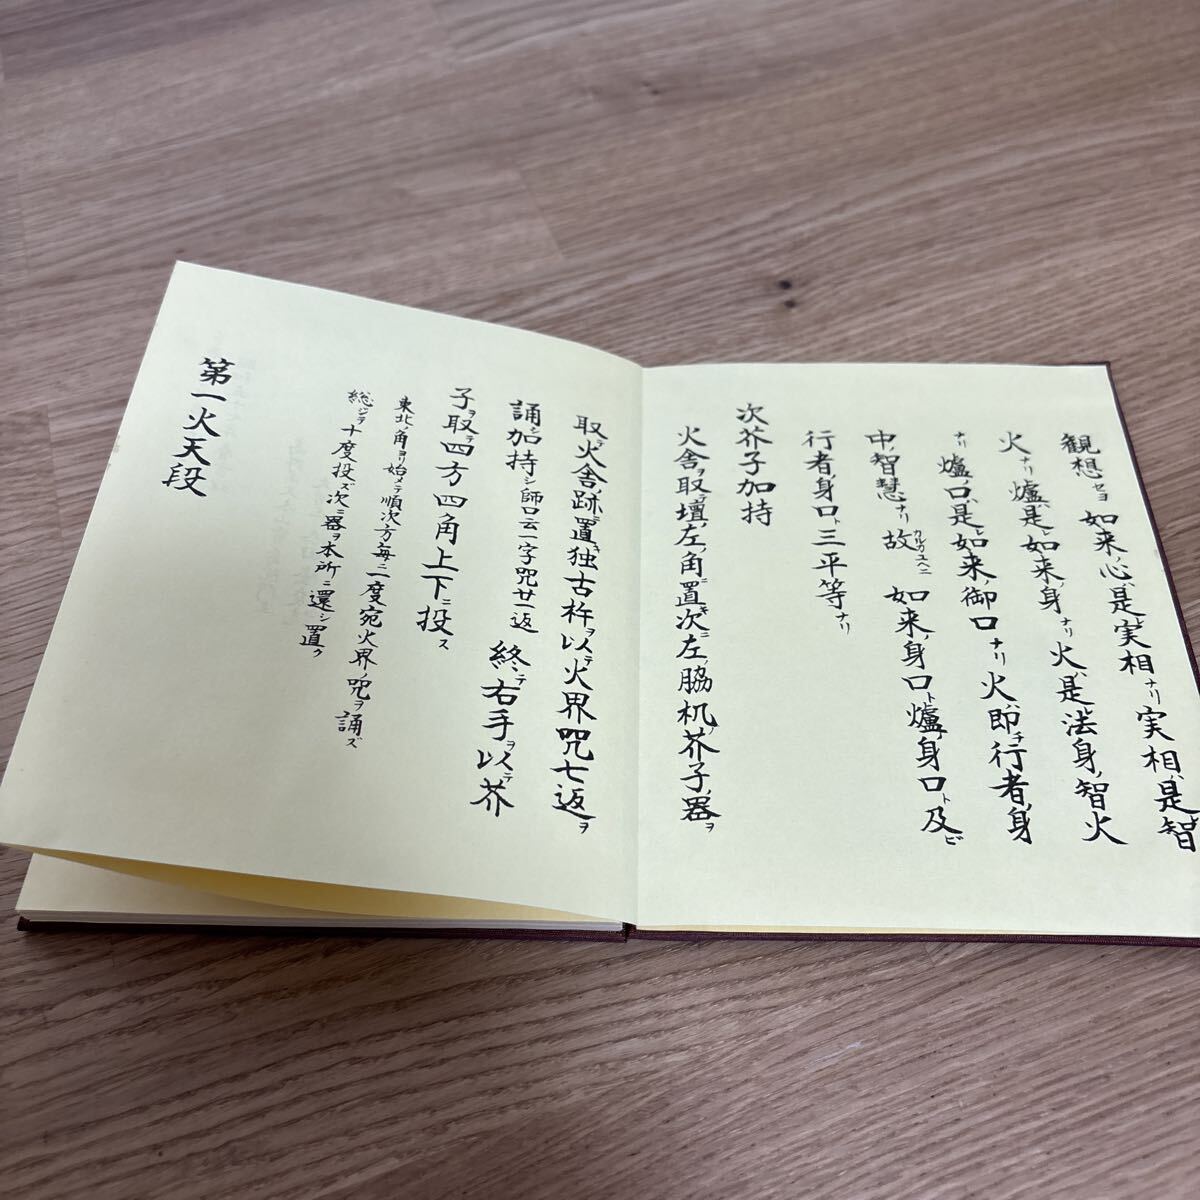 観想セヨ 如来ノ心ハ是レ実相ナリ実相ハ是レ智
火ナリ爐ハ是レ如来ノ身ナリ火ハ是レ法身ノ智火
ナリ爐ノ口ハ是レ如来ノ御口ナリ火ハ即チ行者ノ身
中ノ智慧ナリ故カルガユヘニ如来ノ身口ト爐ノ身口ト及ビ
行者ノ身口ト三平等ナリ
次芥子加持
火舎ヲ取壇ノ左ノ角ニ置キ次ニ左ノ脇机ノ芥子ノ器ヲ
取テ火舎ノ跡ニ置キ独古杵ヲ以テ火界咒七返ヲ
誦シ加持シ師口云一字咒廿一返 終テ右手ヲ以テ芥
子ヲ取テ四方四角上下ニ投ス
東北ノ角ヨリ始メテ順次方毎ニ一度宛火界ノ咒ヲ誦ズ
総ジテ十度投ズ次ニ器ヲ本所ニ還シ置ク
第一火天段